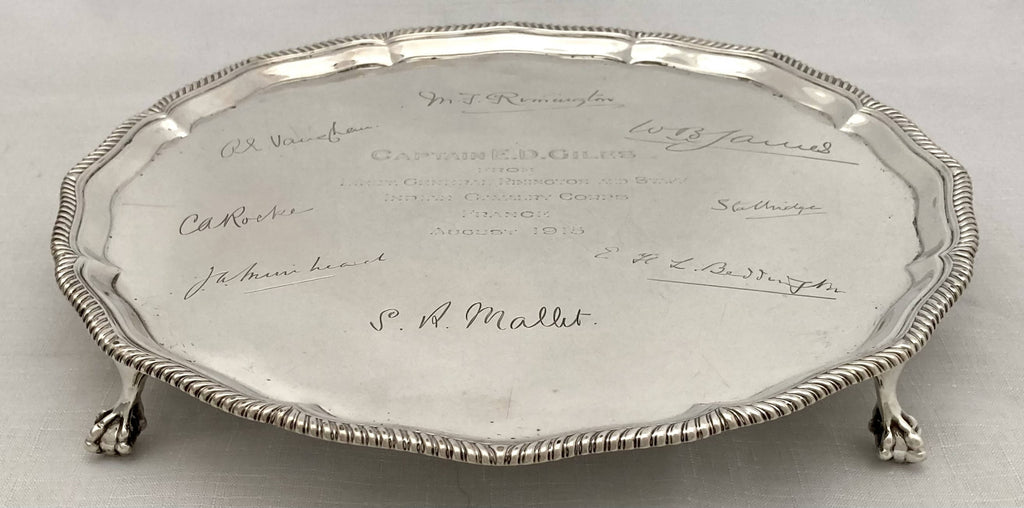 M. F. Rimington
W B James
CAPTAIN E.D. GILES
FROM
LIEUT. GENERAL RIMINGTON AND STAFF
INDIAN CAVALRY CORPS
FRANCE
AUGUST 1915
CA Rocke
J A Muirhead
E H L Beddington
S. A. Mallet.